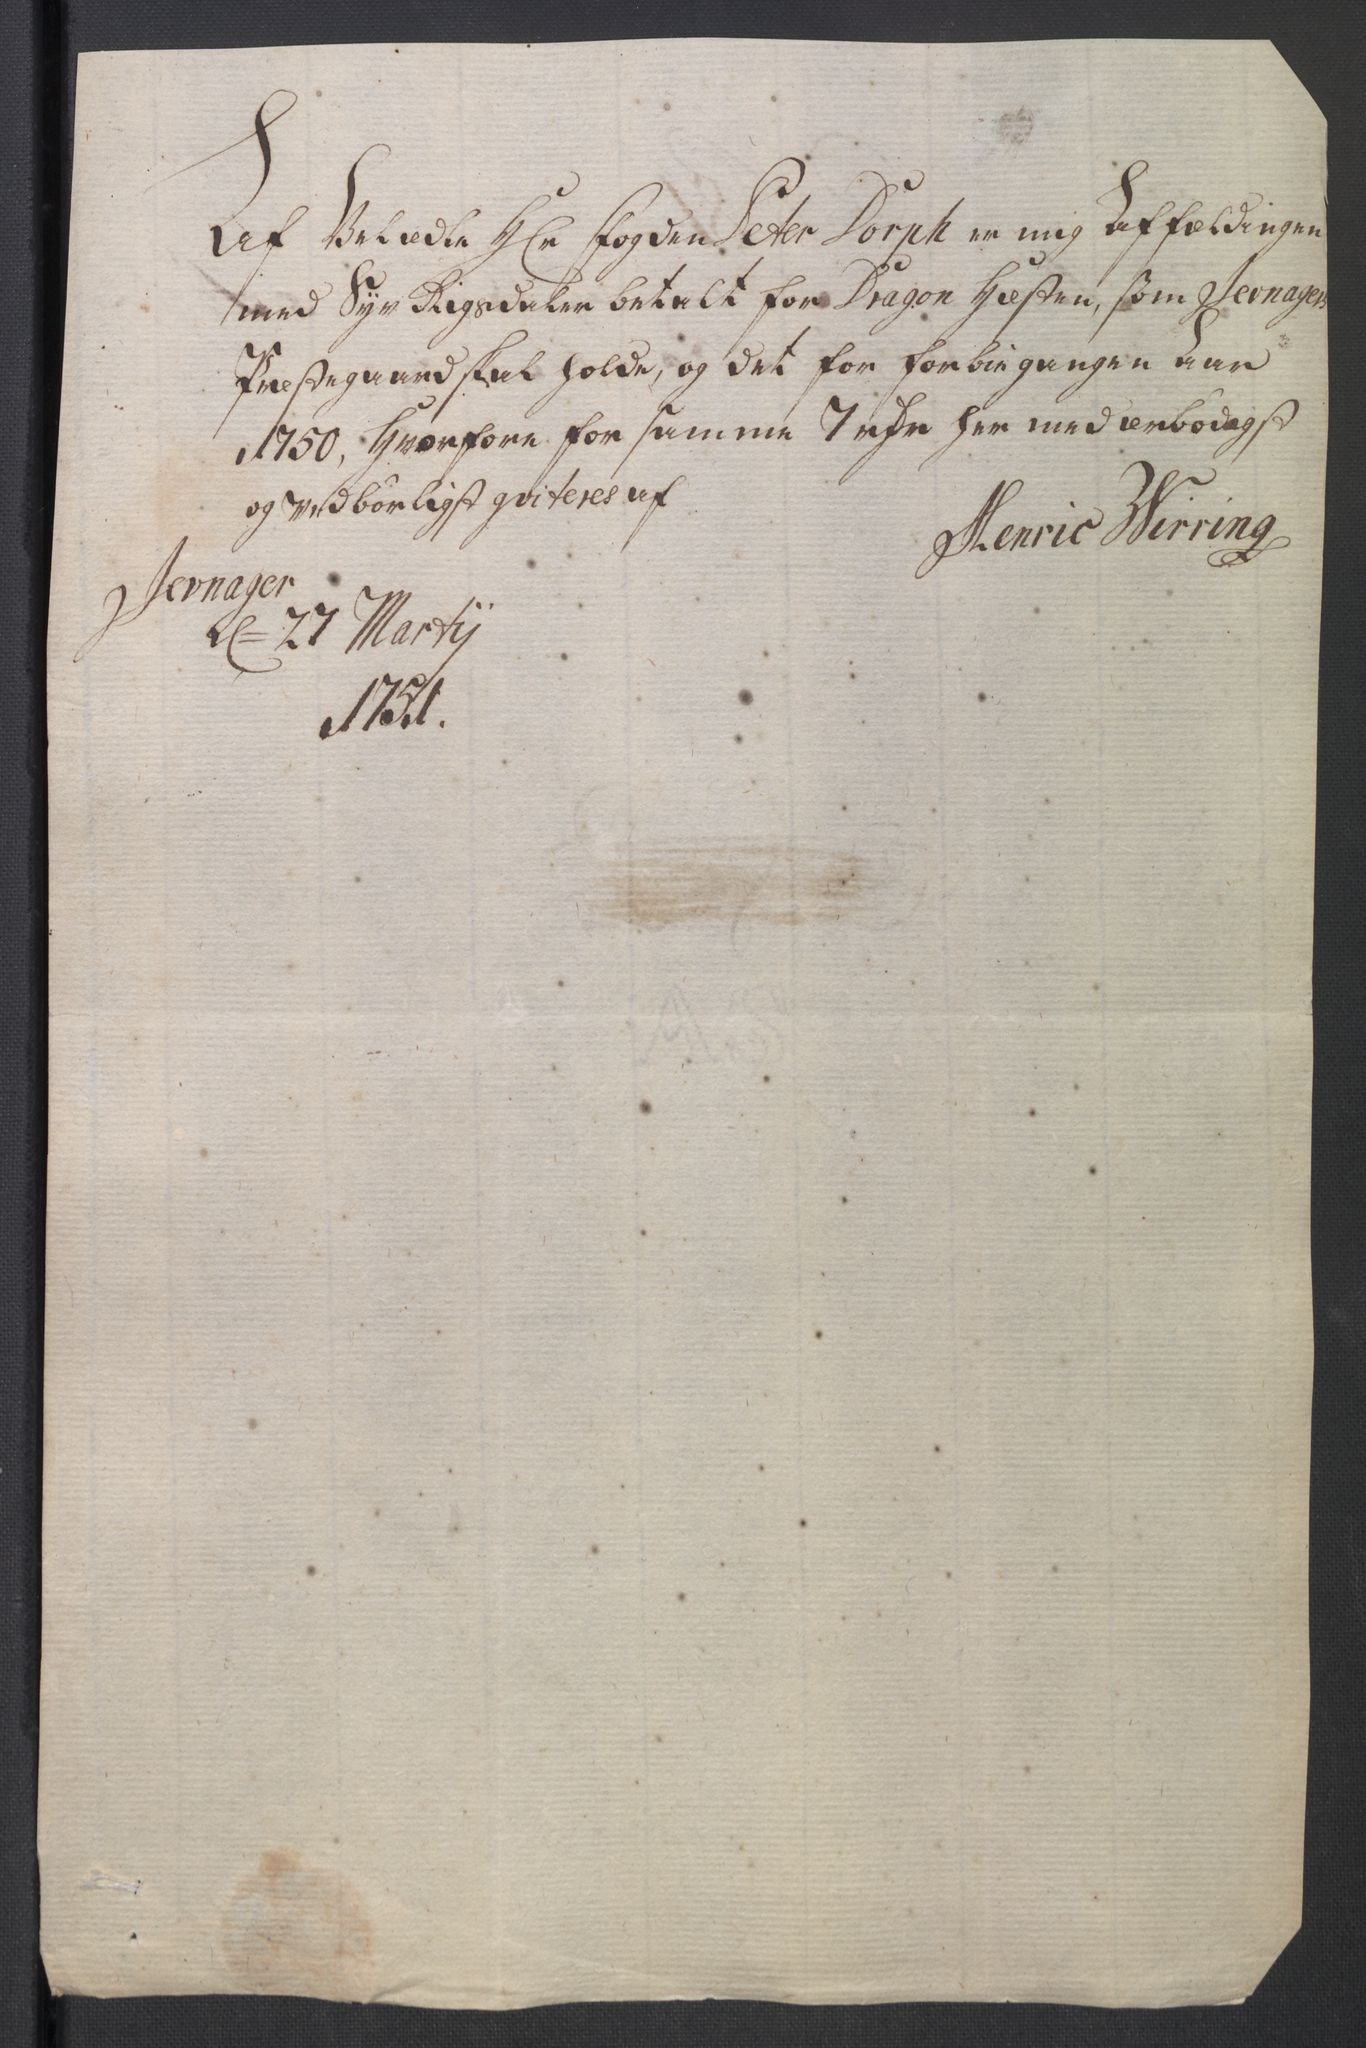 Af Velædle Hr Fogden Peter Dorph er mig Affældingen
med Syv Rigsdaler betalt for Dragon Hæsten, som Jevnager
Præstegaard skal holde, og det for forbiegangen Aar
1750, Hvorfore for samme 7 rdr her med ærbødigst
og vedbörligst qviteres af
Henric Wirring
Jevnager
d 27 Martij
1751.